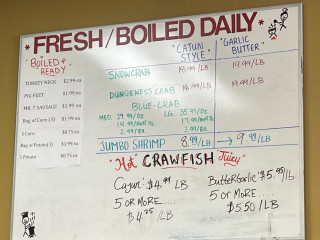 * FRESH/BOILED DAILY *
"BOILED & READY"
TURKEY NECK $2.99 ea
PIG FEET $1.99 ea
MR. T SAUSAGE $1.99 ea
Bag of Corn (3) $1.99 ea
1 Corn $0.75 ea
Bag of Potato(3) $1.99 ea
1 Potato $0.75 ea
"CAJUN STYLE" "GARLIC BUTTER"
SNOWCRAB /LB 19.99/LB
DUNGENESS CRAB /LB 19.99/LB
BLUE-CRAB
MED. LG. 35.99/DZ
JUMBO SHRIMP 8.99/LB → 9.99/LB
"Hot CRAWFISH Juicy"
Cajun: $4.99/LB
5 OR MORE....
$4.75/LB
Butter Garlic: $5.95/Lb
5 OR MORE...
$5.50/LB